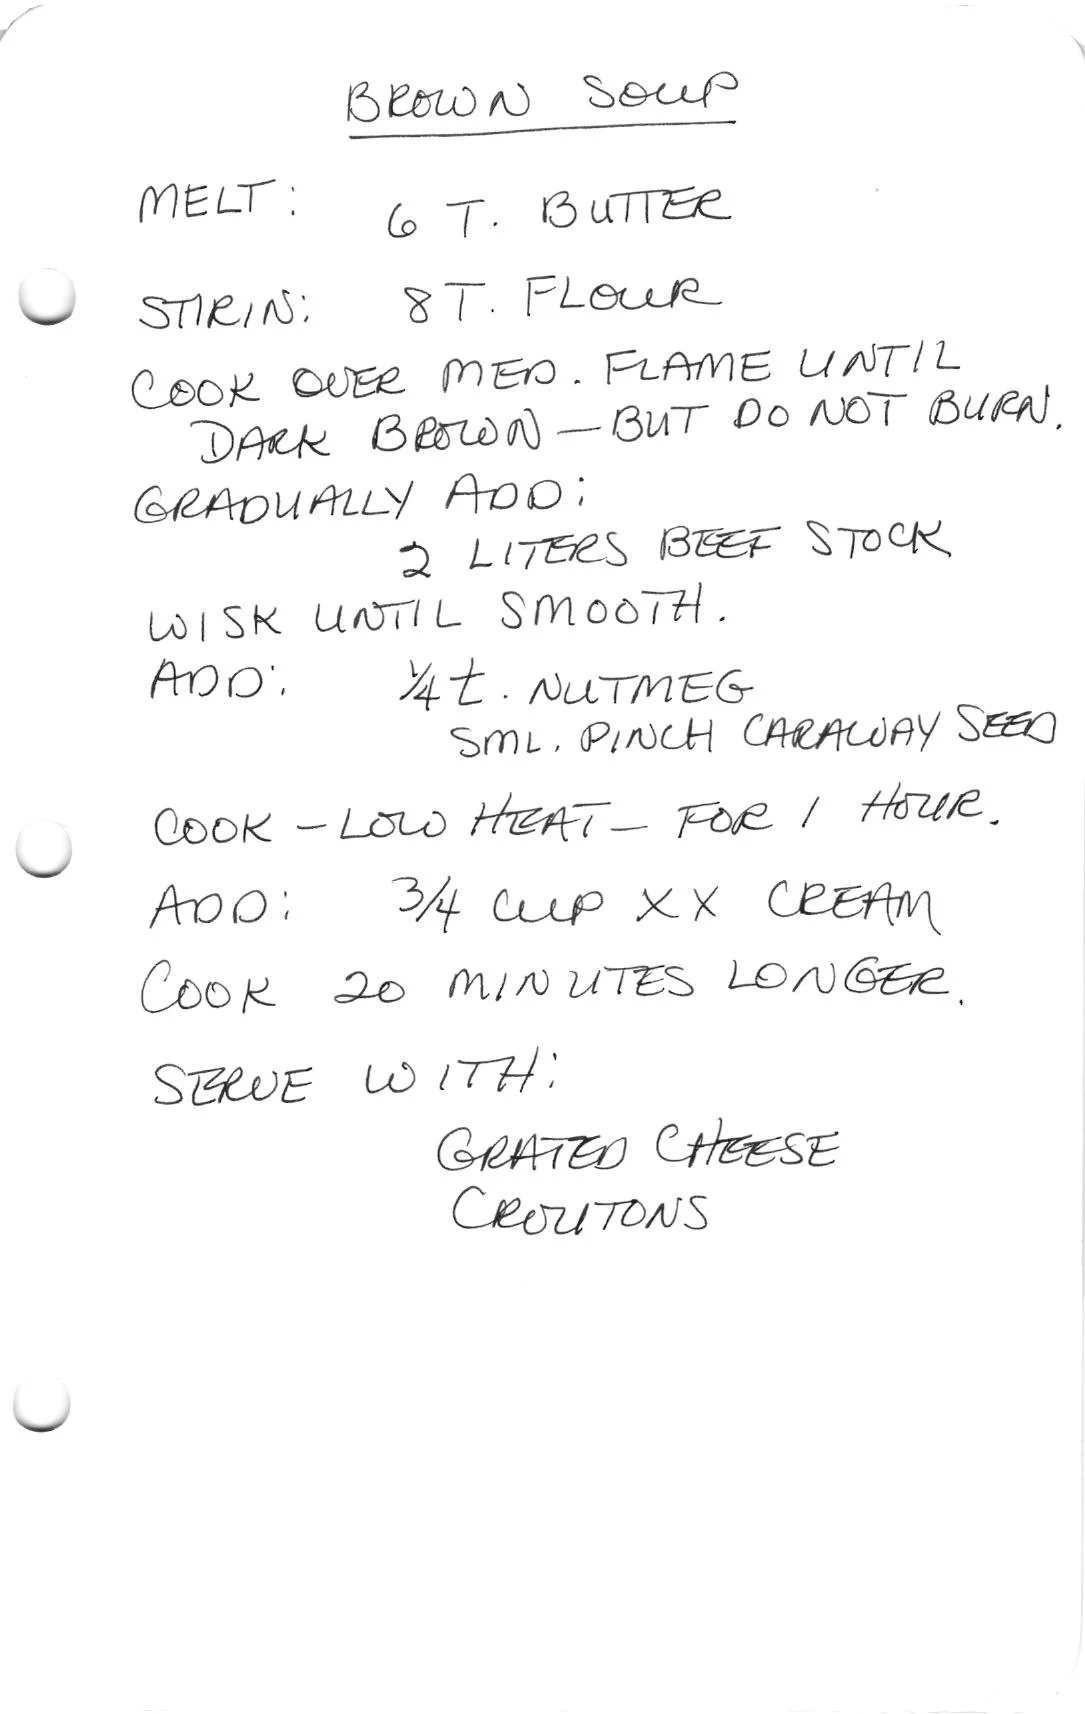 BROWN SOUP
MELT: 6 T. BUTTER
STIR IN: 8 T. FLOUR
COOK OVER MED. FLAME UNTIL
DARK BROWN — BUT DO NOT BURN.
GRADUALLY ADD:
2 LITERS BEEF STOCK
WISK UNTIL SMOOTH.
ADD: 1/4 t. NUTMEG
SML. PINCH CARAWAY SEED
COOK – LOW HEAT – FOR 1 HOUR.
ADD: 3/4 CUP XX CREAM
COOK 20 MINUTES LONGER.
SERVE WITH:
GRATED CHEESE
CROUTONS